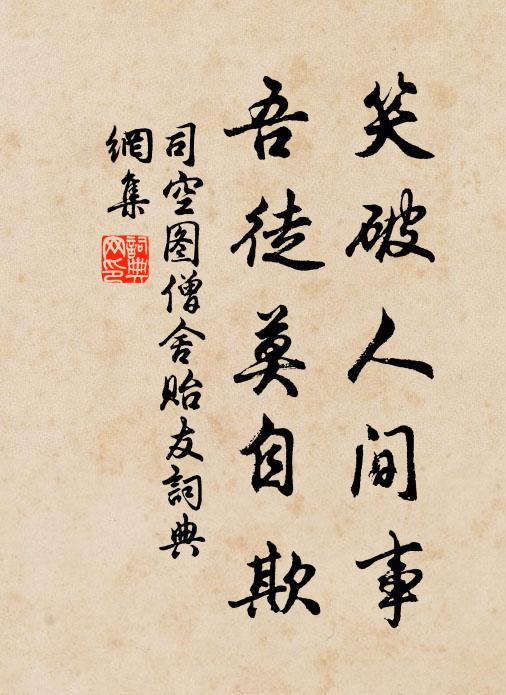 笑破人间事
吾徒莫自欺
司空图僧舍贻友词典
網集
詞典
网印